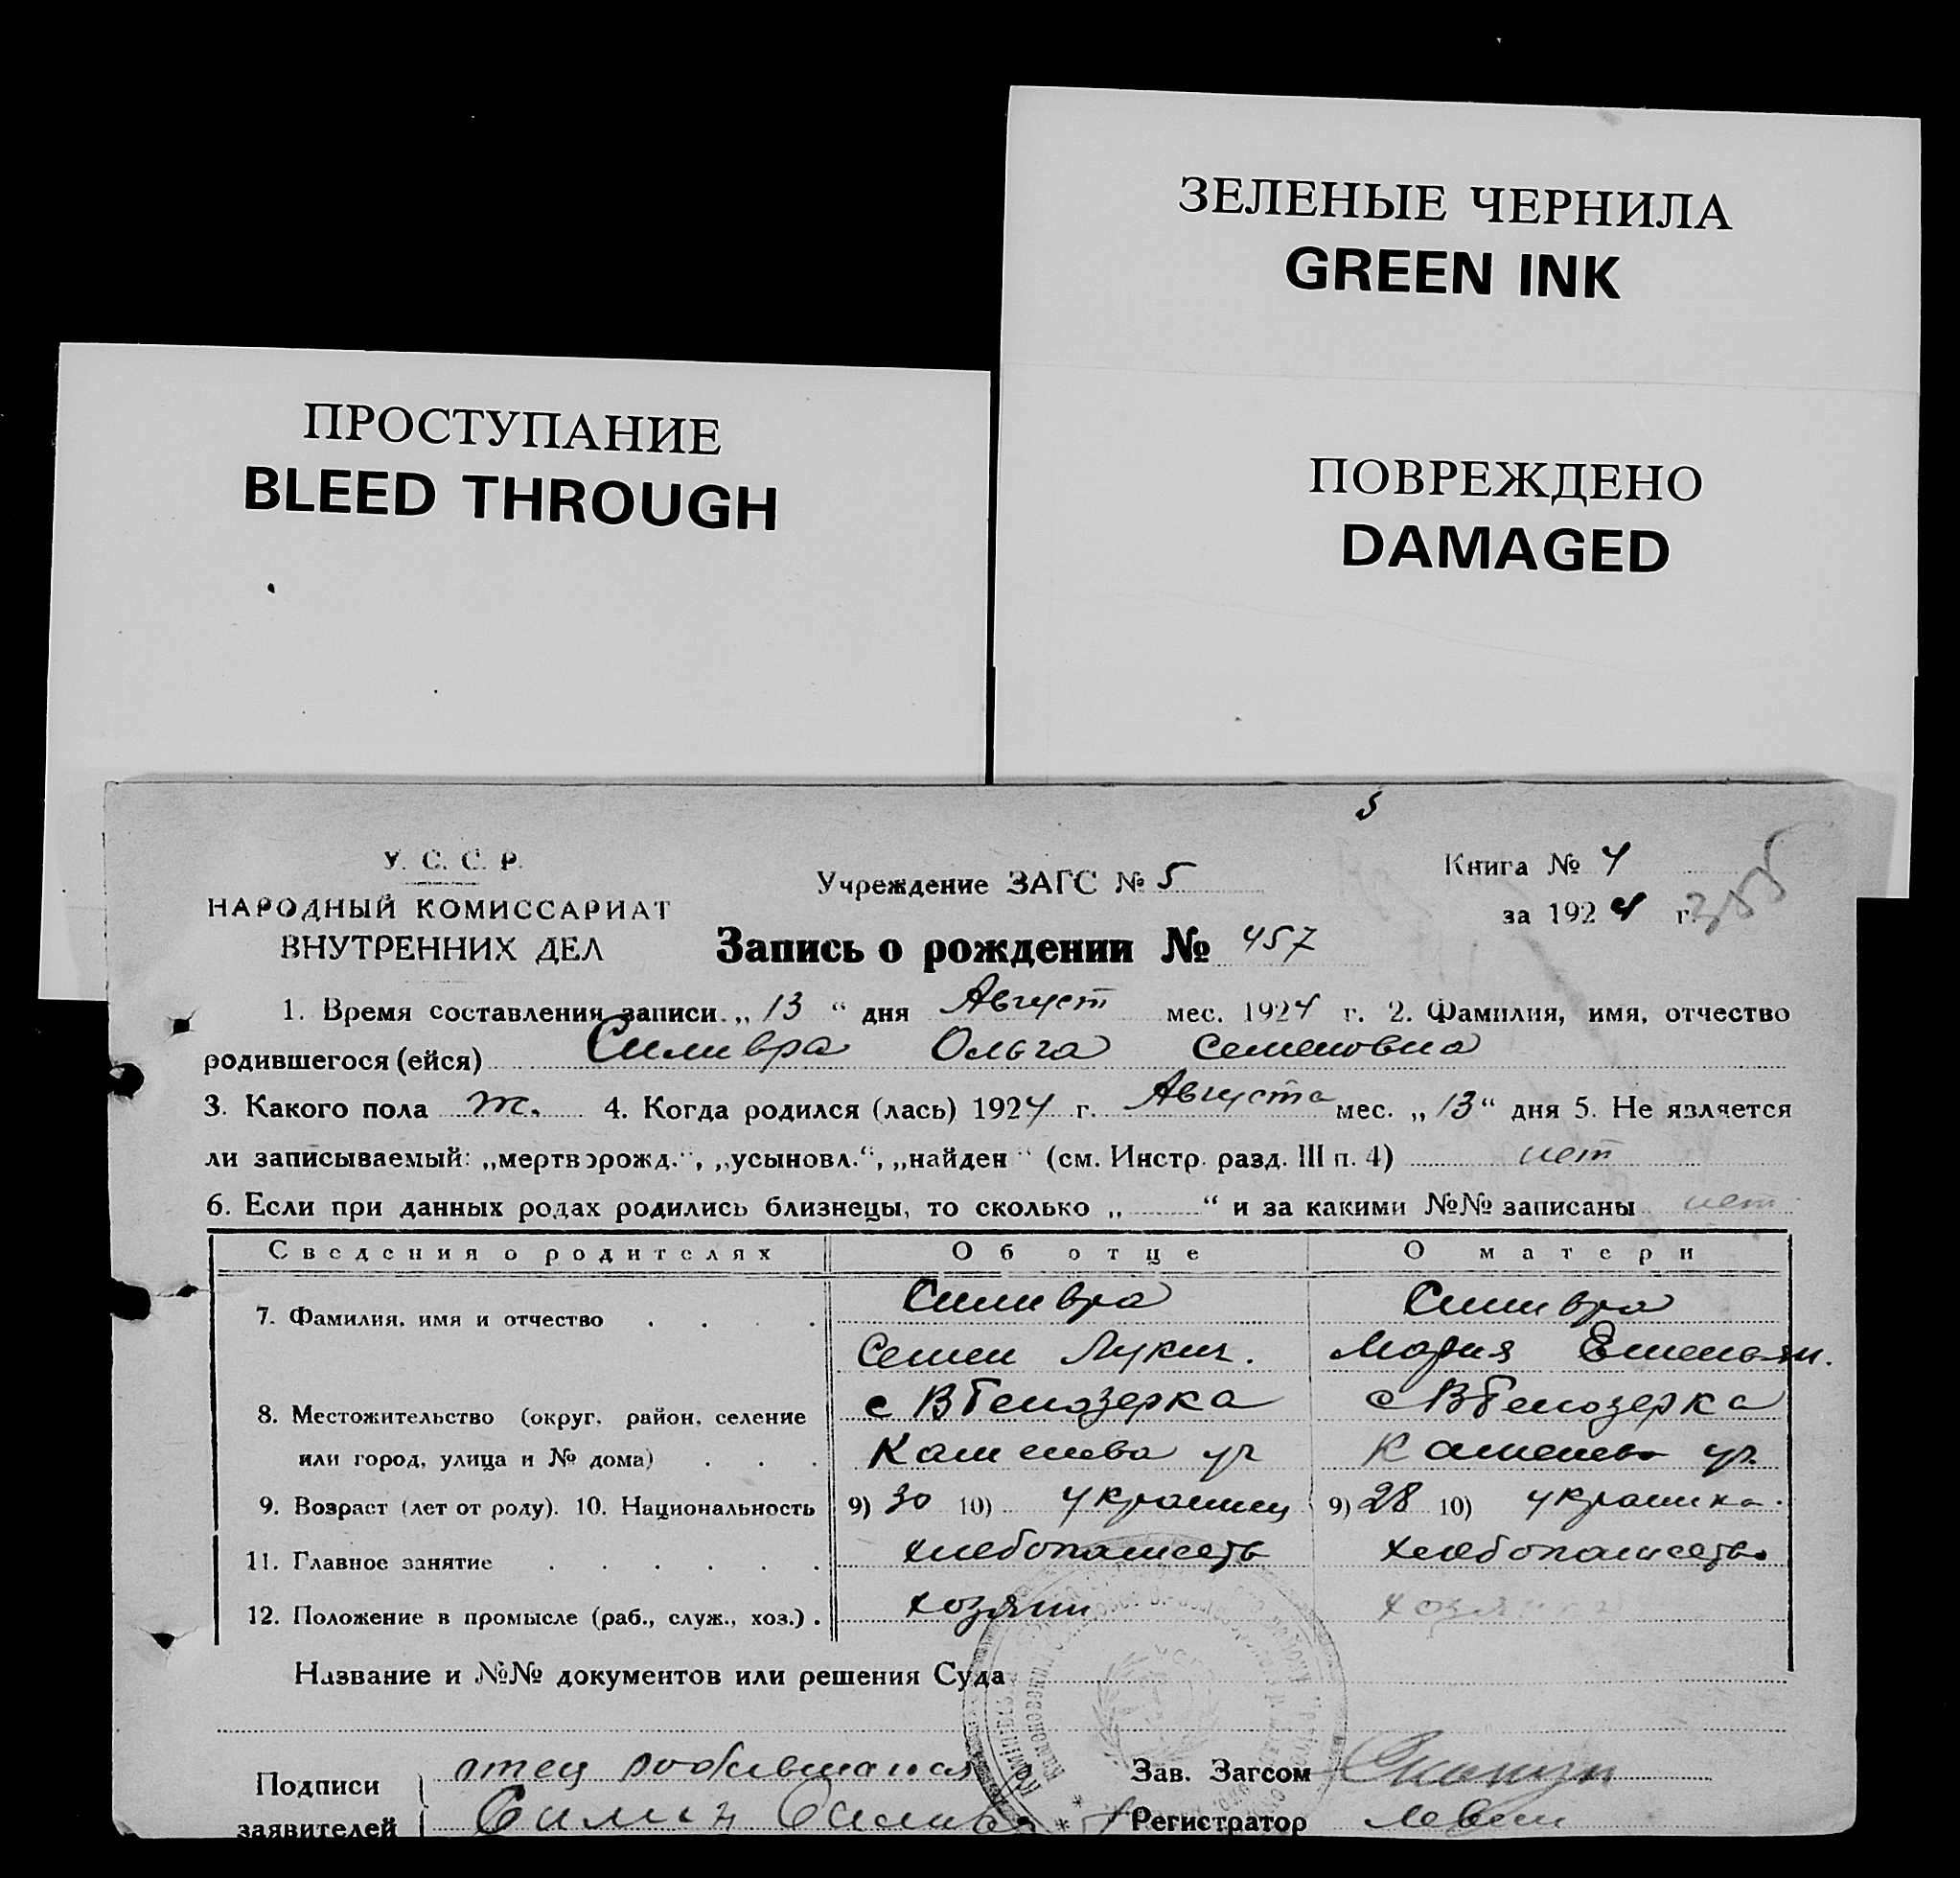 ЗЕЛЕНЫЕ ЧЕРНИЛА
GREEN INK
ПРОСТУПАНИЕ
BLEED THROUGH
ПОВРЕЖДЕНО
DAMAGED
5
У. С. С. Р.
НАРОДНЫЙ КОМИССАРИАТ
ВНУТРЕННИХ ДЕЛ
Учреждение ЗАГС № 5
Книга № 4
за 1924 г.
355
Запись о рождении № 457
1. Время составления записи „ 13 “ дня Август мес. 1924 г. 2. Фамилия, имя, отчество
родившегося (ейся) Силивра Ольга Семеновна
3. Какого пола ж. 4. Когда родился (лась) 1924 г. Августа мес. „ 13 “ дня 5. Не является
ли записываемый: „мертворожд.“, „усыновл.“, „найден“ (см. Инстр. разд. III п. 4) нет
6. Если при данных родах родились близнецы, то сколько „ “ и за какими №№ записаны нет
Сведения о родителях Об отце О матери
7. Фамилия, имя и отчество Силивра Силивра
Семен Лукич. Мария Емельян.
8. Местожительство (округ, район, селение с Вбелозерка с Вбелозерка
или город, улица и № дома) Каменева ул Каменева ул.
9. Возраст (лет от роду). 10. Национальность 9) 30 10) украинец 9) 28 10) украинка.
11. Главное занятие хлебопашеств хлебопашество
12. Положение в промысле (раб., служ., хоз.) хозяин хозяйка
Название и №№ документов или решения Суда
Подписи отец Зав. Загсом
заявителей Регистратор